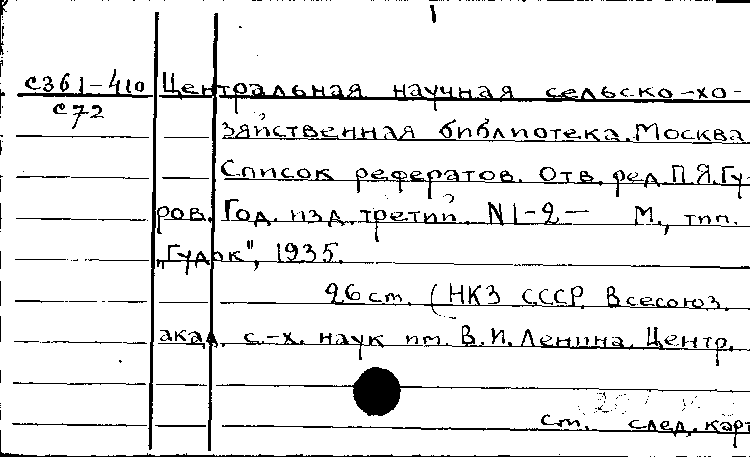 с361-410 Центральная научная сельско-хо-
с72
зяйственная библиотека. Москва
Список рефератов. Отв. ред. П.Я.Гу-
ров. Год. изд. третий. N1-2- М., тип.
„Гудок", 1935.
26 ст. (НКЗ СССР. Всесоюз.
акад. с.-х. наук им. В.И. Ленина. Центр.
ст. след. карт